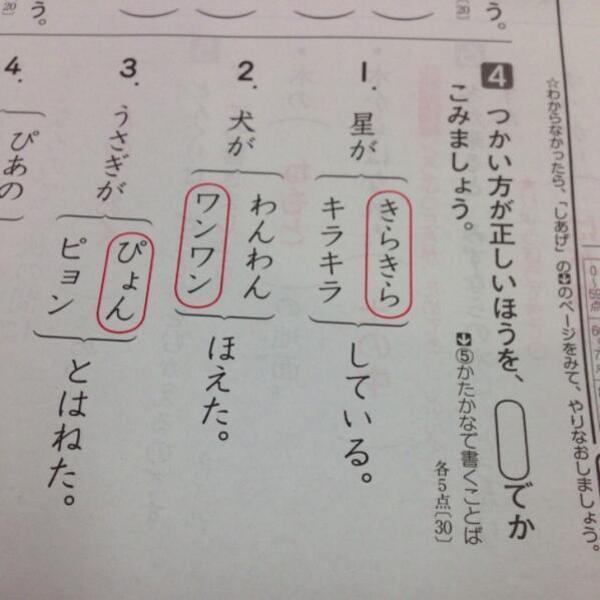 う。
〔20〕
☆わからなかったら、「しあげ」の⬇のページをみて、やりなおしましょう。
4 つかい方が正しいほうを、 でか
こみましょう。
⬇⑤かたかなで書くことば
各5点〔30〕
1. 星が きらきら キラキラ している。
2. 犬が わんわん ワンワン ほえた。
3. うさぎが ぴょん ピョン とはねた。
4. ぴあの
う。
20